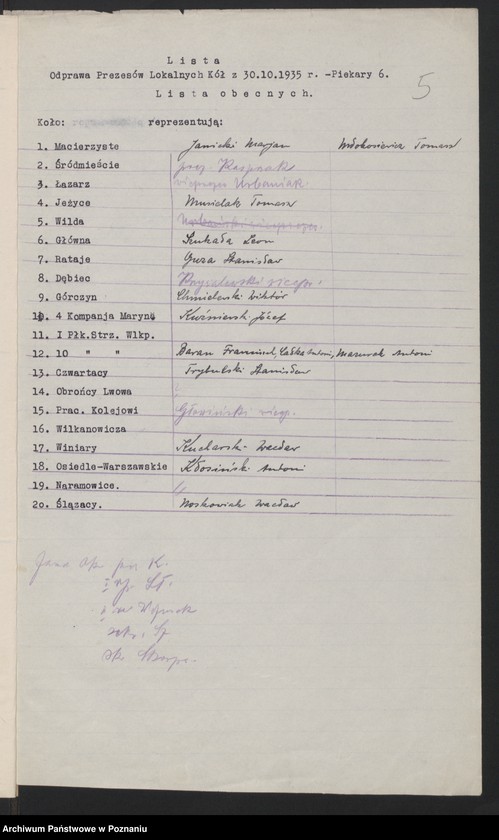 Lista
Odprawa Prezesów Lokalnych Kół z 30.10.1935 r. -Piekary 6.
5
Lista obecnych.
Koło: reprezentują:
1. Macierzyste Janicki Marjan Włokosiewicz Tomasz
2. Śródmieście prez. Kasprzak
3. Łazarz viceprezes Urbaniak
4. Jeżyce Musielak Tomasz
5. Wilda
6. Główna Szukała Leon
7. Rataje Guza Stanisław
8. Dębiec
9. Górczyn Chmielewski Wiktór
10. 4 Kompanja Maryn. Kuźnierek Józef
11. I Płk.Strz. Wlkp.
12. 10 " " Baran Franciszek, Antoni, Mazurek Antoni
13. Czwartacy Trybulski Stanisław
14. Obrońcy Lwowa
15. Prac. Kolejowi
16. Wilkanowicza
17. Winiary Kucharski Wacław
18. Osiedle-Warszawskie Kłosiński Antoni
19. Naramowice.
20. Ślązacy. Noskowiak Wacław
Archiwum Państwowe w Poznaniu